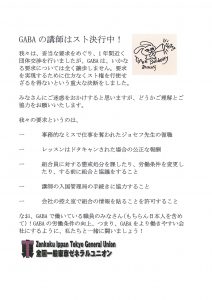 GABAの講師はスト決行中！
我々は、妥当な要求をめぐり、1年間近く
団体交渉を行いましたが、GABAは、いかな
る要求については全く譲歩しません。要求
を実現するために仕方なくスト権を行使せ
ざるを得ないという重大な決断をしました。
みなさんにご迷惑をおかけすると思いますが、どうかご理解とご
協力をお願いいたします。
我々の要求というのは、
― 事務的なミスで仕事を奪われたジョセフ先生の復職
― レッスンはドタキャンされた場合の公正な報酬
― 組合員に対する懲戒処分を課したり、労働条件を変更し
たり、する前に組合と協議をすること
― 講師の入国管理局の手続きに協力すること
― 会社の控え室で組合の情報を貼ることを許可すること
なお、GABAで働いている職員のみなさん（もちろん日本人を含め
て）！GABAの労働条件の向上、つまり、GABAをより働きやすい会
社にするように、私たちと一緒に闘いましょう！
Zenkoku Ippan Tokyo General Union
全国一般東京ゼネラルユニオン